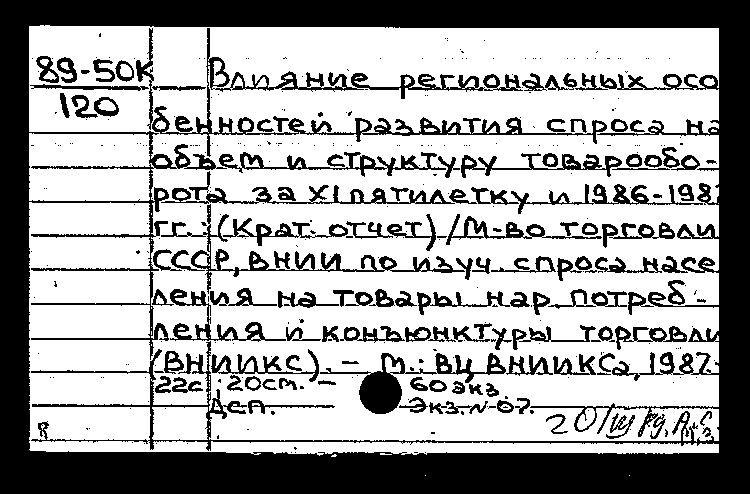 89-50К
120
Влияние региональных осо
бенностей развития спроса на
объем и структуру товарообо-
рота за XI пятилетку и 1986-1987
гг.: (Крат. отчет) / М-во торговли
СССР, ВНИИ по изуч. спроса насе
ления на товары нар. потреб-
ления и конъюнктуры торговли
(ВНИИКС). – М.: ВЦ ВНИИКСа, 1987.-
22с ; 20см. – 60 экз.
Деп. Экз. N 07.
20/VIII